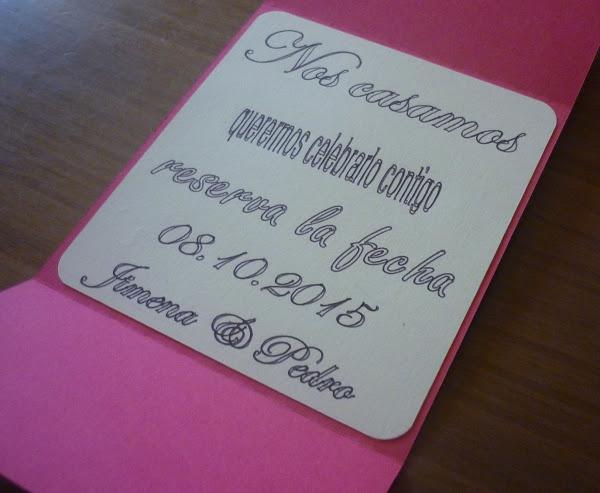 Nos casamos
queremos celebrarlo contigo
reserva la fecha
08.10.2015
Jimena & Pedro